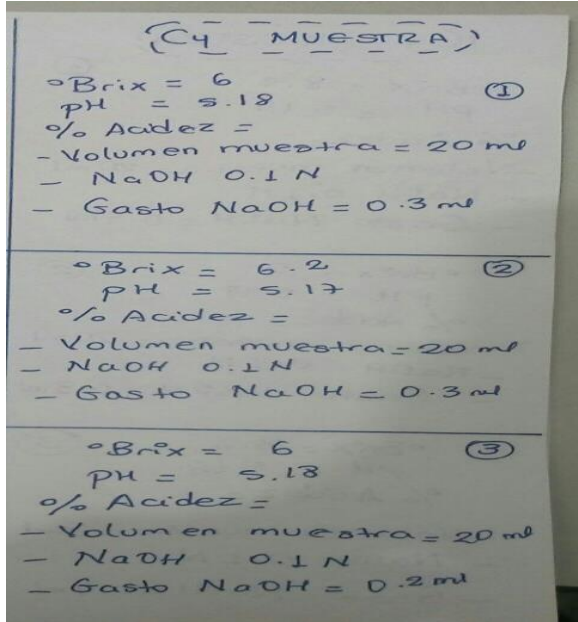 C4 MUESTRA
°Brix = 6 ①
pH = 5.18
% Acidez =
- Volumen muestra = 20 ml
- NaOH 0.1 N
- Gasto NaOH = 0.3 ml
°Brix = 6.2 ②
pH = 5.17
% Acidez =
- Volumen muestra = 20 ml
- NaOH 0.1 N
- Gasto NaOH = 0.3 ml
°Brix = 6 ③
pH = 5.18
% Acidez =
- Volumen muestra = 20 ml
- NaOH 0.1 N
- Gasto NaOH = 0.2 ml